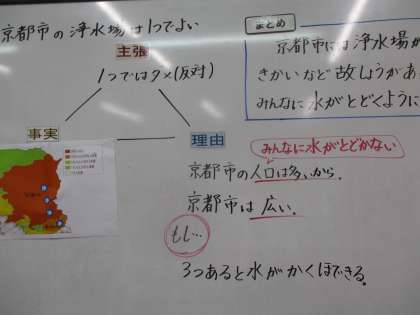 京都市の浄水場は1つでよい
まとめ
主張
京都市には浄水場が
1つではダメ(反対)
きかいなど故しょうがあ
みんなに水がとどくように
事実
理由
みんなに水がとどかない
京都市の人口は多いから。
京都市は広い。
もし…
3つあると水がかくほできる。